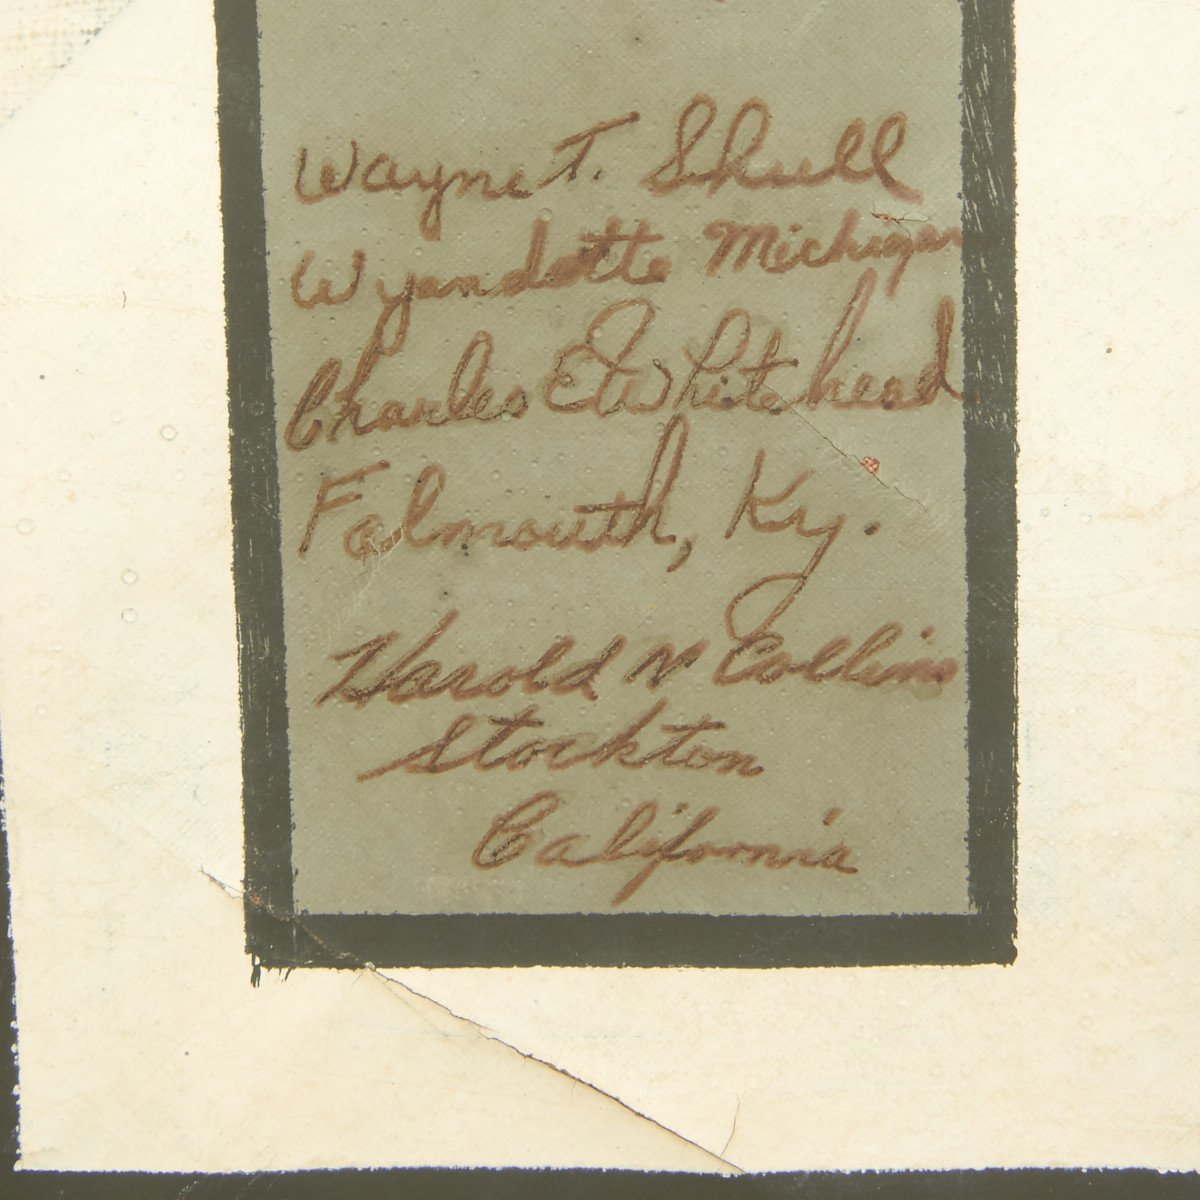 Wayne T. Shull
Wyandotte Michigan
Charles E. Whitehead
Falmouth, Ky.
Harold N Collins
Stockton
California